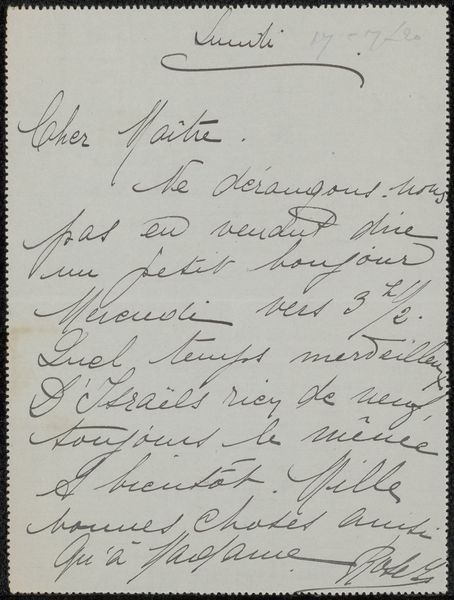 Lundi
Cher Maître.
Ne dérangons-nous
pas en venant dire
un petit bonjour
Mercredi vers 3 h 1/2.
Quel temps merveilleux
D'Israëls rien de neuf,
toujours le même
A bientôt. Mille
bonnes choses ainsi
qu'à Madame